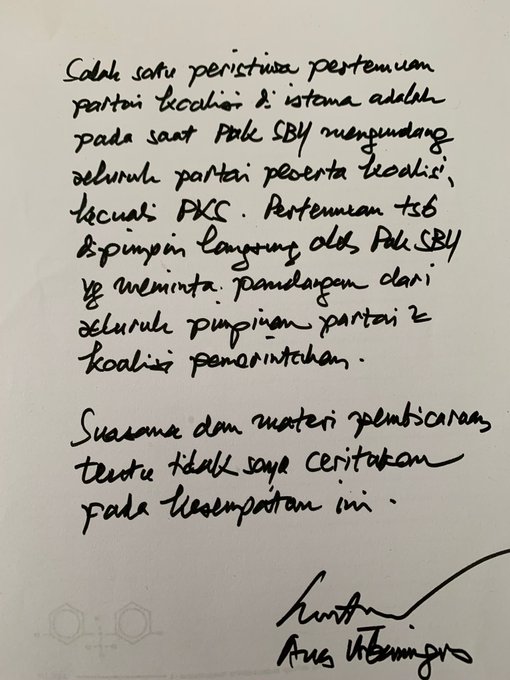 Salah satu peristiwa pertemuan
partai koalisi di istana adalah
pada saat Pak SBY mengundang
seluruh partai peserta koalisi,
kecuali PKS. Pertemuan tsb
dipimpin langsung oleh Pak SBY
yg meminta pandangan dari
seluruh pimpinan partai2
koalisi pemerintahan.
Suasana dan materi pembicaraan
tentu tidak saya ceritakan
pada kesempatan ini.
Anas Urbaningrum